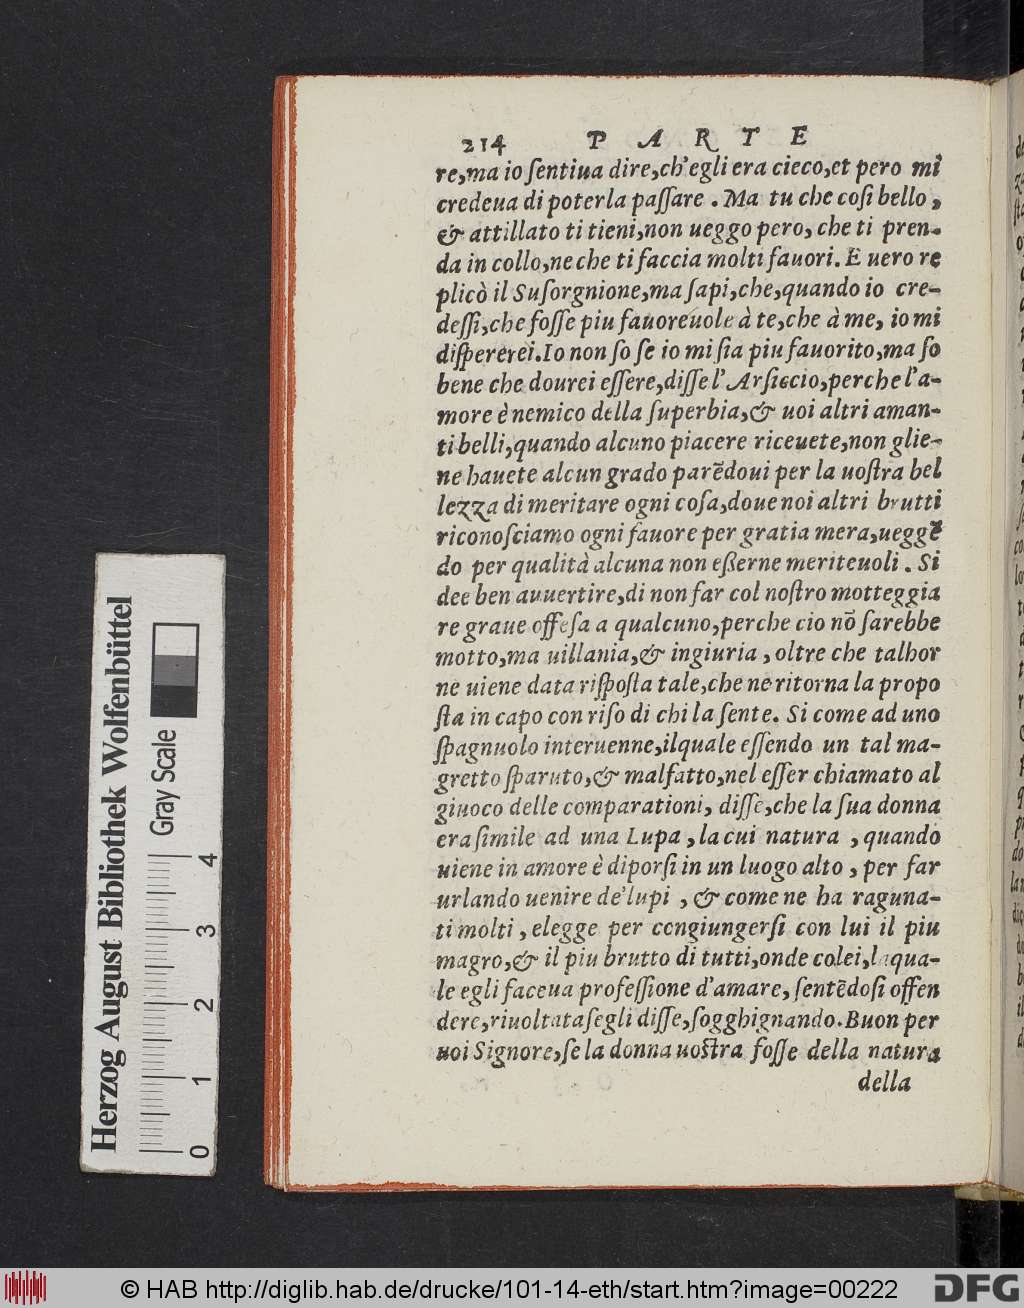 214 PARTE
re,ma io ſentiua dire,ch'egli era cieco,et pero mi
credeua di poterla paſſare . Ma tu che coſi bello ,
& attillato ti tieni,non ueggo pero, che ti pren-
da in collo,ne che ti faccia molti fauori. E uero re
plicò il Suſorgnione,ma ſapi,che,quando io cre-
deſſi,che foſſe piu fauoreuole à te,che à me, io mi
diſpererei.Io non ſo ſe io mi ſia piu fauorito,ma ſo
bene che dourei eſſere,diſſe l'Arſiccio,perche l'a-
more è nemico della ſuperbia,& uoi altri aman-
ti belli,quando alcuno piacere riceuete,non glie-
ne hauete alcun grado parēdoui per la uoſtra bel
lezza di meritare ogni coſa,doue noi altri brutti
riconoſciamo ogni fauore per gratia mera,ueggē
do per qualità alcuna non eßerne meriteuoli . Si
dee ben auuertire,di non far col noſtro motteggia
re graue offeſa a qualcuno,perche cio nō ſarebbe
motto,ma uillania,& ingiuria , oltre che talhor
ne uiene data riſpoſta tale,che ne ritorna la propo
ſta in capo con riſo di chi la ſente. Si come ad uno
ſpagnuolo interuenne,ilquale eſſendo un tal ma-
gretto ſparuto,& malfatto,nel eſſer chiamato al
giuoco delle comparationi, diſſe,che la ſua donna
era ſimile ad una Lupa , la cui natura , quando
uiene in amore è diporſi in un luogo alto , per far
urlando uenire de'lupi , & come ne ha raguna-
ti molti , elegge per congiungerſi con lui il piu
magro,& il piu brutto di tutti,onde colei,laqua-
le egli faceua profeſſione d'amare, ſentēdoſi offen
dere,riuoltataſegli diſſe,ſogghignando.Buon per
uoi Signore,ſe la donna uoſtra foſſe della natura
della
Herzog August Bibliothek Wolfenbüttel
Gray Scale
0 1 2 3 4
© HAB http://diglib.hab.de/drucke/101-14-eth/start.htm?image=00222
DFG